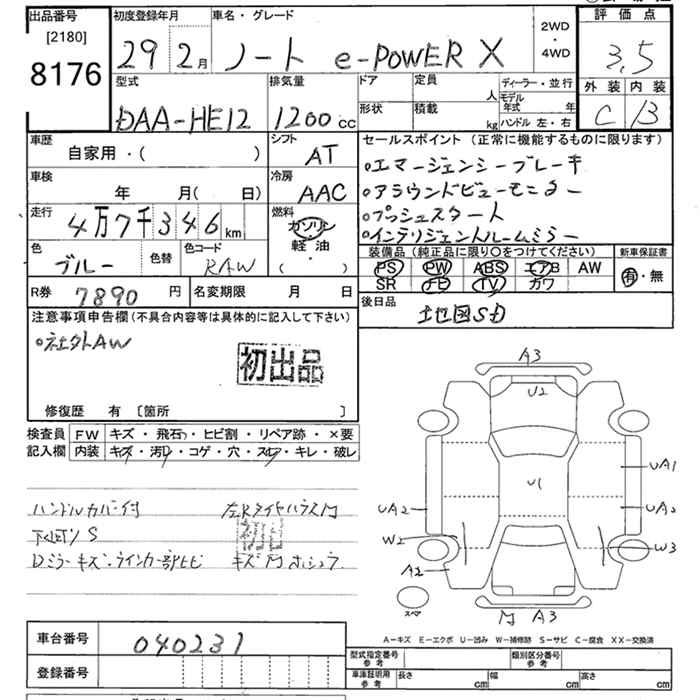 出品番号 初度登録年月 車名・グレード 2WD ・ 4WD 評価点
[2180]
8176 29 2月 ノート e-POWER X 3.5
型式 排気量 ドア 定員 人 ディーラー・並行 外装 内装
モデル年式 年
DAA-HE12 1200cc 形状 積載 kg ハンドル 左・右 C B
車歴 シフト セールスポイント (正常に機能するものに限ります)
自家用・( ) AT
・エマージェンシーブレーキ
車検 冷房
年 月( 日) AAC ・アラウンドビューモニター
走行 燃料 ・プッシュスタート
4万7千346km ガソリン ・インテリジェントルームミラー
軽油・
( )
色 色替 色コード 装備品 (純正品に限り○をつけてください) 新車保証書
ブルー RAW PS PW ABS エアB AW 有・無
SR ナビ TV カワ
R券 7890円 名変期限 月 日 後日品
地図SD
注意事項申告欄(不具合内容等は具体的に記入して下さい)
・社外AW
初出品
修復歴 有 [箇所 ]
検査員 FW キズ・飛石・ヒビ割・リペア跡・×要
記入欄 内装 キズ・汚レ・コゲ・穴・スレ・キレ・破レ
ハンドルカバー付
S
Dミラーキズ・ウインカー部ヒビ
A3
U2
U1
UA1
UA2
UA2
W2
W3
A2
A3
スペア
A-キズ E-エクボ U-凹み W-補修跡 S-サビ C-腐食 XX-交換済
車台番号 040231
登録番号
型式指定番号 参考 類別区分番号 参考
車庫証明用 参考 長さ cm 幅 cm 高さ cm